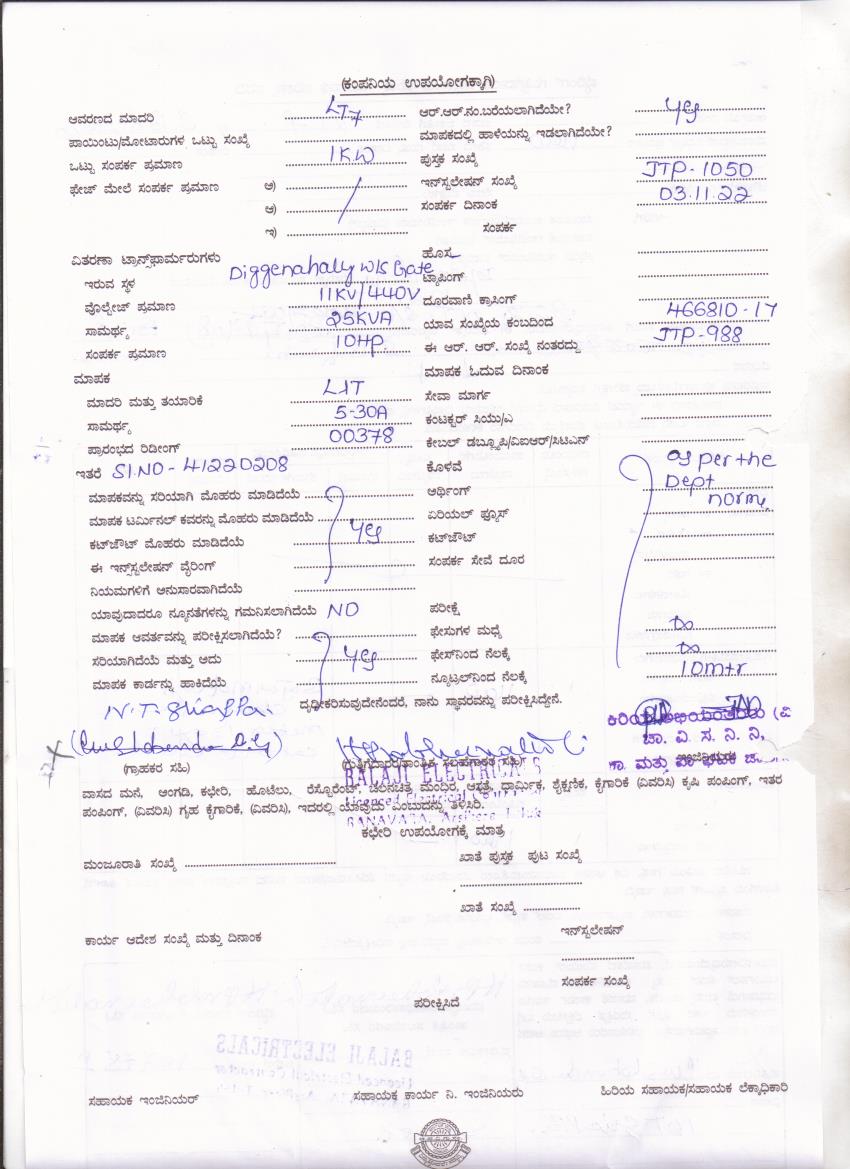 (ಕಂಪನಿಯ ಉಪಯೋಗಕ್ಕಾಗಿ)
ಆವರಣದ ಮಾದರಿ LT7 ಆರ್.ಆರ್.ನಂ.ಬರೆಯಲಾಗಿದೆಯೇ? yes
ಪಾಯಿಂಟು/ಮೋಟಾರುಗಳ ಒಟ್ಟು ಸಂಖ್ಯೆ ಮಾಪಕದಲ್ಲಿ ಹಾಳೆಯನ್ನು ಇಡಲಾಗಿದೆಯೇ?
ಒಟ್ಟು ಸಂಪರ್ಕ ಪ್ರಮಾಣ 1KW ಪುಸ್ತಕ ಸಂಖ್ಯೆ
ಫೇಜ್ ಮೇಲೆ ಸಂಪರ್ಕ ಪ್ರಮಾಣ ಅ) ಇನ್‌ಸ್ಟಲೇಷನ್ ಸಂಖ್ಯೆ JTP-1050
ಆ) ಸಂಪರ್ಕ ದಿನಾಂಕ 03.11.22
ಇ) ಸಂಪರ್ಕ
ವಿತರಣಾ ಟ್ರಾನ್ಸ್‌ಫಾರ್ಮರುಗಳು ಹೊಸ
ಇರುವ ಸ್ಥಳ Diggenahally W/s Gate ಟ್ಯಾಪಿಂಗ್
ವೋಲ್ಟೇಜ್ ಪ್ರಮಾಣ 11KV/440V ದೂರವಾಣಿ ಕ್ರಾಸಿಂಗ್
ಸಾಮರ್ಥ್ಯ 25KVA ಯಾವ ಸಂಖ್ಯೆಯ ಕಂಬದಿಂದ 466810-17
ಸಂಪರ್ಕ ಪ್ರಮಾಣ 10HP ಈ ಆರ್. ಆರ್. ಸಂಖ್ಯೆ ನಂತರದ್ದು JTP-988
ಮಾಪಕ ಮಾಪಕ ಓದುವ ದಿನಾಂಕ
ಮಾದರಿ ಮತ್ತು ತಯಾರಿಕೆ L&T ಸೇವಾ ಮಾರ್ಗ
ಸಾಮರ್ಥ್ಯ 5-30A ಕಂಟಕ್ಟರ್ ಸಿಯು/ಎ
ಪ್ರಾರಂಭದ ರಿಡೀಂಗ್ 00378 ಕೇಬಲ್ ಡಬ್ಲ್ಯೂಪಿ/ವಿಐಆರ್/ಸಿಟಿಎನ್
ಇತರೆ Sl.NO-41220208 ಕೊಳವೆ as per the
ಮಾಪಕವನ್ನು ಸರಿಯಾಗಿ ಮೊಹರು ಮಾಡಿದೆಯೆ ಆರ್ಥಿಂಗ್ Dept
ಮಾಪಕ ಟರ್ಮಿನಲ್ ಕವರನ್ನು ಮೊಹರು ಮಾಡಿದೆಯೆ ಏರಿಯಲ್ ಫ್ಯೂಸ್ norms
ಕಟ್‌ಔಟ್ ಮೊಹರು ಮಾಡಿದೆಯೆ yes ಕಟ್‌ಔಟ್
ಈ ಇನ್ಸ್‌ಸ್ಟಲೇಷನ್ ವೈರಿಂಗ್ ಸಂಪರ್ಕ ಸೇವೆ ದೂರ
ನಿಯಮಗಳಿಗೆ ಅನುಸಾರವಾಗಿದೆಯೆ
ಯಾವುದಾದರೂ ನ್ಯೂನತೆಗಳನ್ನು ಗಮನಿಸಲಾಗಿದೆಯೆ NO ಪರೀಕ್ಷೆ
ಮಾಪಕ ಆವರ್ತವನ್ನು ಪರೀಕ್ಷಿಸಲಾಗಿದೆಯೆ? ಫೇಸುಗಳ ಮಧ್ಯೆ ∞
ಸರಿಯಾಗಿದೆಯೆ ಮತ್ತು ಅದು yes ಫೇಸ್‌ನಿಂದ ನೆಲಕ್ಕೆ ∞
ಮಾಪಕ ಕಾರ್ಡನ್ನು ಹಾಕಿದೆಯೆ ನ್ಯೂಟ್ರಲ್‌ನಿಂದ ನೆಲಕ್ಕೆ 10mtr
ದೃಢೀಕರಿಸುವುದೇನೆಂದರೆ, ನಾನು ಸ್ಥಾವರವನ್ನು ಪರೀಕ್ಷಿಸಿದ್ದೇನೆ.
ಕಿರಿಯ ಅಭಿಯಂತರರು (ವಿ
ಚಾ. ವಿ. ಸ. ನಿ. ನಿ,
(ಗ್ರಾಹಕರ ಸಹಿ)
BALAJI ELECTRICALS
Licenced Electrical
BANAVARA, Arsikere Taluk
ವಾಸದ ಮನೆ, ಅಂಗಡಿ, ಕಛೇರಿ, ಹೊಟೇಲು, ರೆಸ್ಟೋರೆಂಟ್, ಚಲನಚಿತ್ರ ಮಂದಿರ, ಆಸ್ಪತ್ರೆ, ಧಾರ್ಮಿಕ, ಶೈಕ್ಷಣಿಕ, ಕೈಗಾರಿಕೆ (ವಿವರಿಸಿ) ಕೃಷಿ ಪಂಪಿಂಗ್, ಇತರ
ಪಂಪಿಂಗ್, (ವಿವರಿಸಿ) ಗೃಹ ಕೈಗಾರಿಕೆ, (ವಿವರಿಸಿ), ಇದರಲ್ಲಿ ಯಾವುದು ಎಂಬುದನ್ನು ತಿಳಿಸಿರಿ.
ಕಛೇರಿ ಉಪಯೋಗಕ್ಕೆ ಮಾತ್ರ
ಮಂಜೂರಾತಿ ಸಂಖ್ಯೆ ಖಾತೆ ಪುಸ್ತಕ ಪುಟ ಸಂಖ್ಯೆ
ಖಾತೆ ಸಂಖ್ಯೆ
ಕಾರ್ಯ ಆದೇಶ ಸಂಖ್ಯೆ ಮತ್ತು ದಿನಾಂಕ ಇನ್‌ಸ್ಟಲೇಷನ್
ಸಂಪರ್ಕ ಸಂಖ್ಯೆ
ಪರೀಕ್ಷಿಸಿದೆ
ಸಹಾಯಕ ಇಂಜಿನಿಯರ್ ಸಹಾಯಕ ಕಾರ್ಯ ನಿ. ಇಂಜಿನಿಯರು ಹಿರಿಯ ಸಹಾಯಕ/ಸಹಾಯಕ ಲೆಕ್ಕಾಧಿಕಾರಿ